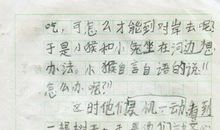 吃，可怎么才能到对岸去呢？
于是小猴和小兔坐在河边想
办法。小猴自言自语的说："
怎么办呢？"
这时他们灵机一动看到
一棵树